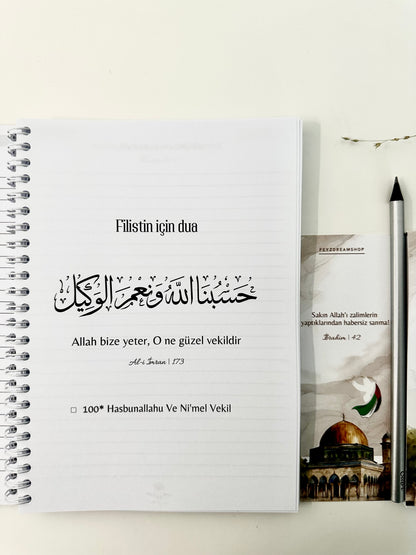 Filistin için dua
حَسْبُنَا اللّٰهُ وَنِعْمَ الْوَكِيْلُ
Allah bize yeter, O ne güzel vekildir
Al-i İmran | 173
□ 100* Hasbunallahu Ve Ni'mel Vekil
FEYZDREAMSHOP
Sakın Allah'ı zalimlerin
yaptıklarından habersiz sanma!
İbrahim | 42